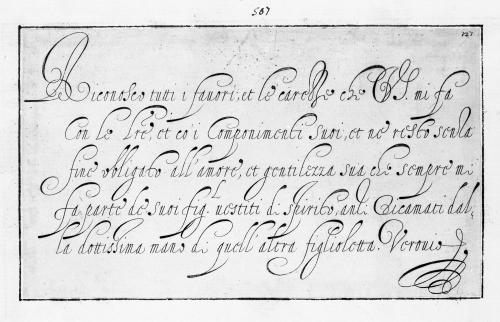 587
127
Riconosco tutti i fauori, et le carezze che V.S. mi fa
Con le l͞re, et co i Componimenti suoi, et ne resto senza
fine obligato all'amore, et gentilezza sua che sempre mi
fa parte de suoi fig.li uestiti di spirito, anzi Ricamati dal,
la dottissima mano di quell'altra figlioletta.